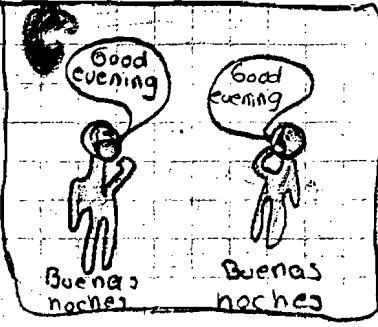 Good
evening
Good
evening
Buenas
noches
Buenas
noches